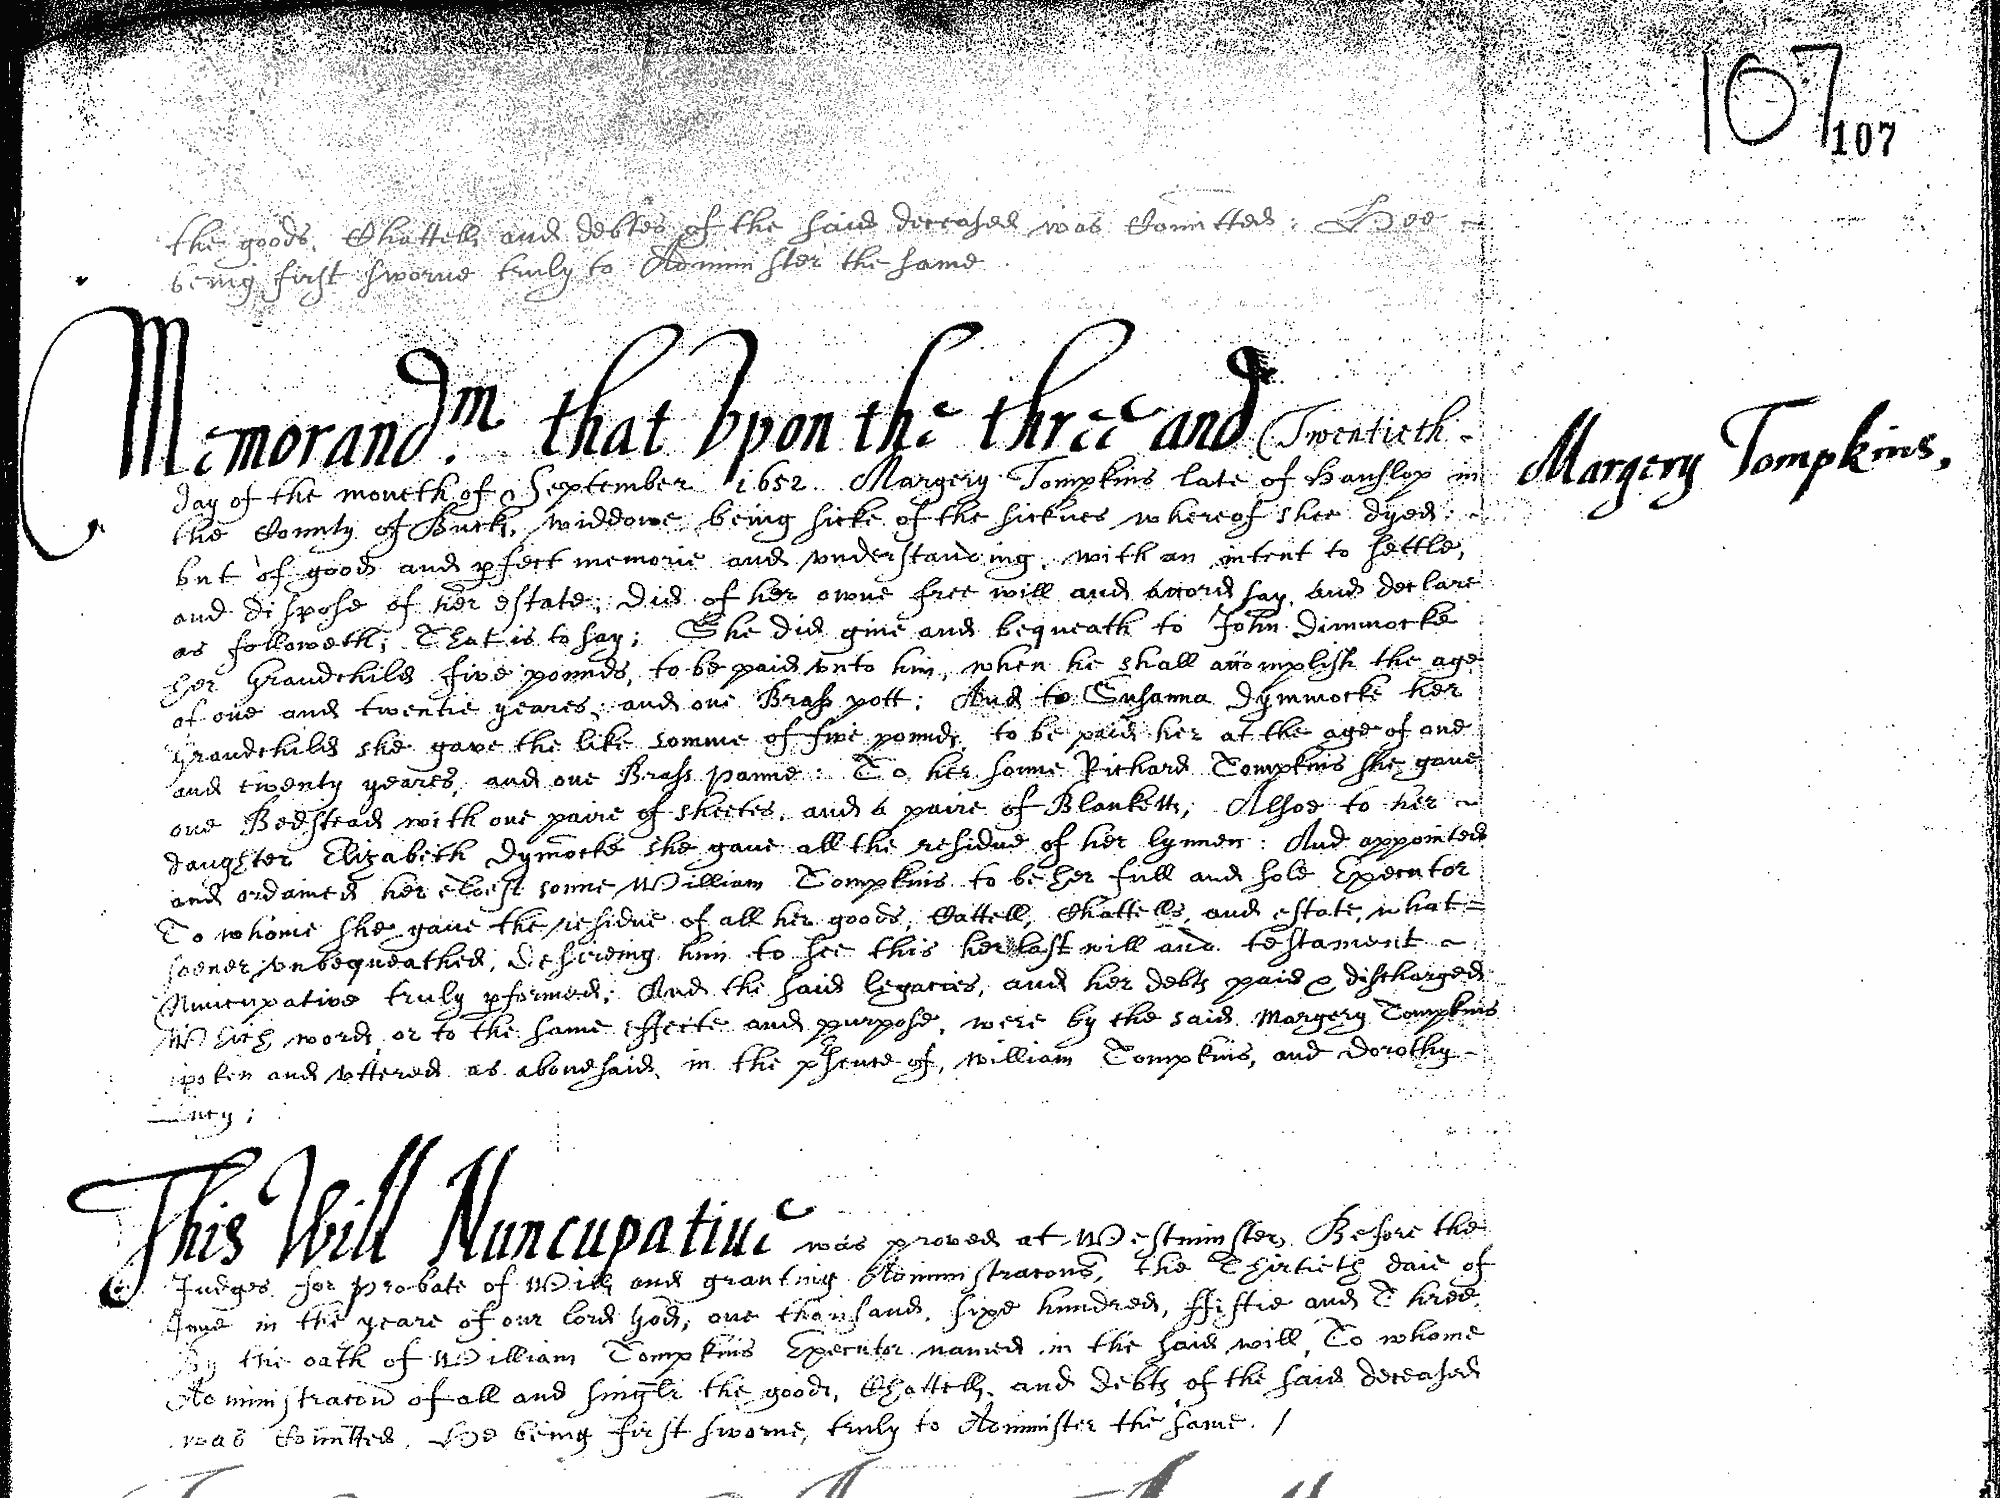 107
107
the goods, Chattells and debtes of the said deceased was Comitted: Hee
being first sworne truly to Administer the same
Memorand.m that vpon the three and Twentieth
Margery Tompkins,
day of the moneth of September 1652. Margery Tompkins late of Hanslop in
the County of Buck, widdowe being sicke of the sicknes whereof shee dyed;
but of good and pfect memorie and vnderstanding, with an intent to settle,
and dispose of her estate; Did of her owne free will and accord say, and declare
as followeth; That is to say; She did giue and bequeath to John Dimmocke
her Grandchild five pounds, to be paid vnto him, when he shall accomplish the age
of one and twentie yeares, and one Brass pott; And to Susanna Dymmocke her
Grandchild she gave the like somme of five pounds, to be paid her at the age of one
and twenty yeares, and one Brass panne: To her sonne Richard Tompkins she gaue
one Bedstead with one paire of sheetes, and a paire of Blanketts; Alsoe to her
daughter Elizabeth Dymocke she gaue all the residue of her lynnen: And appointed
and ordained her eldest sonne William Tompkins to be her full and sole Executor
To whome she gaue the residue of all her goods, Cattell, Chattells, and estate, what-
soeuer vnbequeathed, Desireing him to see this her last will and testament
Nuncupative truly pformed; And the said legacies, and her debts paid & discharged
Which words, or to the same effecte and purpose, were by the said Margery Tompkins
spoken and vttered as abouesaid, in the psence of, William Tompkins, and Dorothy
This Will Nuncupatiue was proved at Westminster, Before the
Judges for probate of Wills and granting Administracons, the Thirtieth daie of
June in the yeare of our lord God, one thousand, sixe hundred, ffiftie and Three,
By the oath of William Tompkins Executor named in the said will, To whome
Administracon of all and singlr the goods, Chattells, and debts of the said deceased
was Comitted, He being first sworne, truly to Administer the same. /